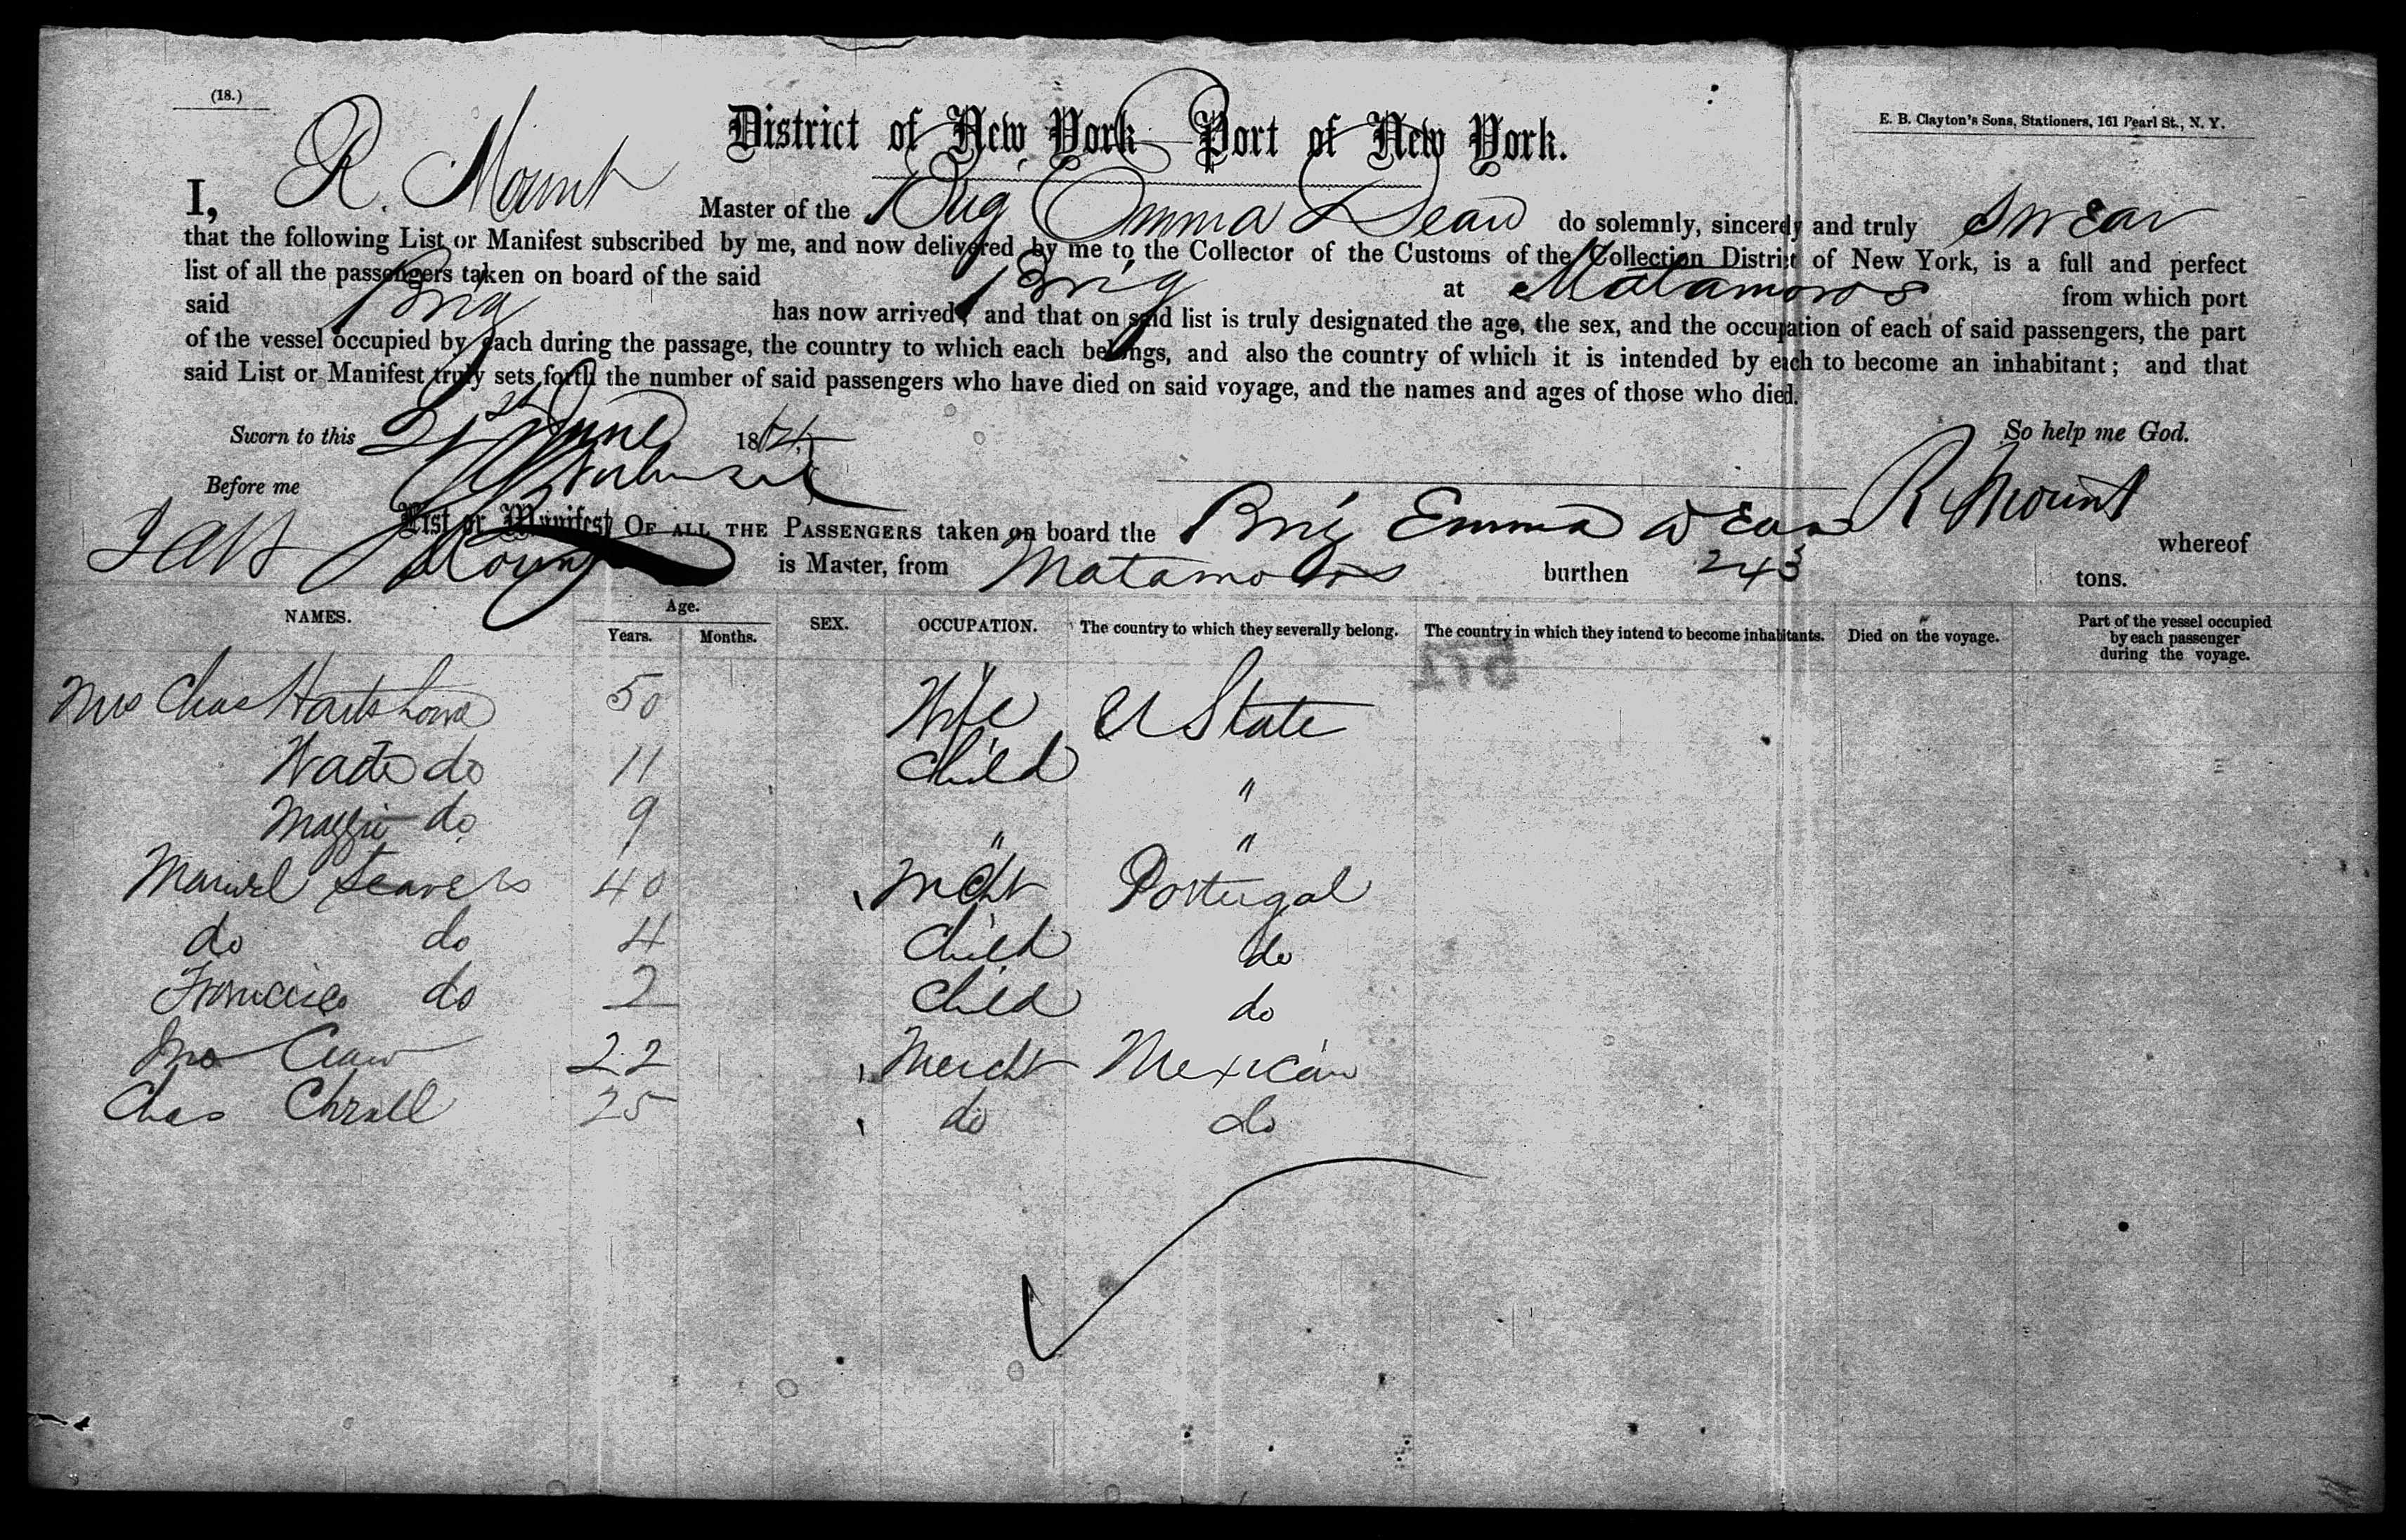 (18.)
District of New York—Port of New York.
E. B. Clayton's Sons, Stationers, 161 Pearl St., N. Y.
I, R. Mount Master of the Brig Emma Dean do solemnly, sincerely and truly swear
that the following List or Manifest subscribed by me, and now delivered by me to the Collector of the Customs of the Collection District of New York, is a full and perfect
list of all the passengers taken on board of the said Brig at Matamoros from which port
said Brig has now arrived; and that on said list is truly designated the age, the sex, and the occupation of each of said passengers, the part
of the vessel occupied by each during the passage, the country to which each belongs, and also the country of which it is intended by each to become an inhabitant; and that
said List or Manifest truly sets forth the number of said passengers who have died on said voyage, and the names and ages of those who died.
Sworn to this 21st June 1864 So help me God.
Before me
R Mount
List or Manifest OF ALL THE PASSENGERS taken on board the Brig Emma Dean whereof
is Master, from Matamoros burthen 243 tons.
NAMES. Age. Years. Months. SEX. OCCUPATION. The country to which they severally belong. The country in which they intend to become inhabitants. Died on the voyage. Part of the vessel occupied by each passenger during the voyage.
571
Mrs Chas Hartshorne 50 Wife U State
do 11 Child "
Maggie do 9 " "
Manuel Seavers 40 Mcht Portugal
do do 4 Child do
Francisco do 2 Child do
Jno 22 Mercht Mexican
Chas 25 do do